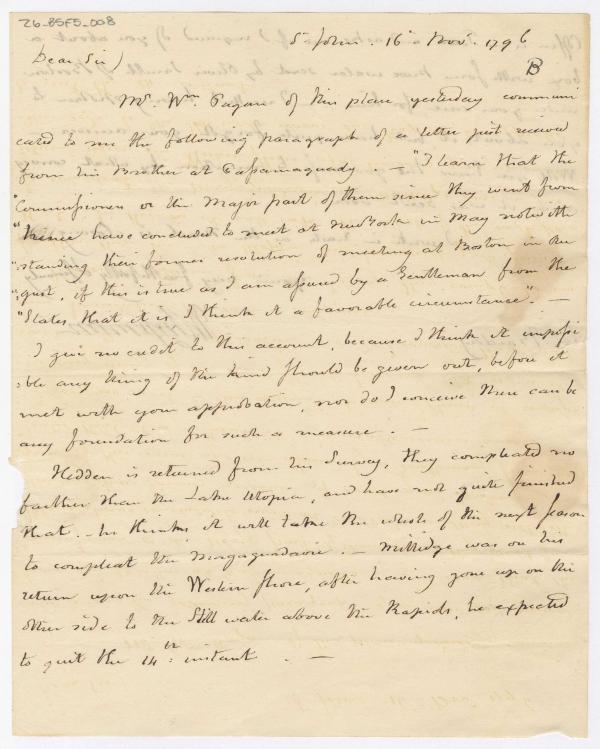 Z6_B5F5_008
St John. 16th Novr. 1796
B
Dear Sir)
Mr. Wm Pagan of this place yesterday communi
cated to me the following paragraph of a letter just received
from his Brother at Passamaquady. — "I learn that the
"Commissioners or the Major part of them since they went from
"hence have concluded to meet at New York in May notwith
"standing their former resolution of meeting at Boston in Au
"gust, if this is true as I am assured by a Gentleman from the
"States that it is I think it a favorable circumstance". —
I give no credit to this account, because I think it impossi
:ble any thing of the kind should be given out, before it
met with your approbation, nor do I conceive there can be
any foundation for such a measure. —
Hedden is returned from his Survey, they compleated no
farther than the Lake Utopia, and have not quite finished
that. — he thinks it will take the whole of the next season
to compleat the Magaguadavic. — Millidge was on his
return upon the Western shore, after having gone up on the
other side to the Still water above the Rapids, he expected
to quit the 14th: instant. —